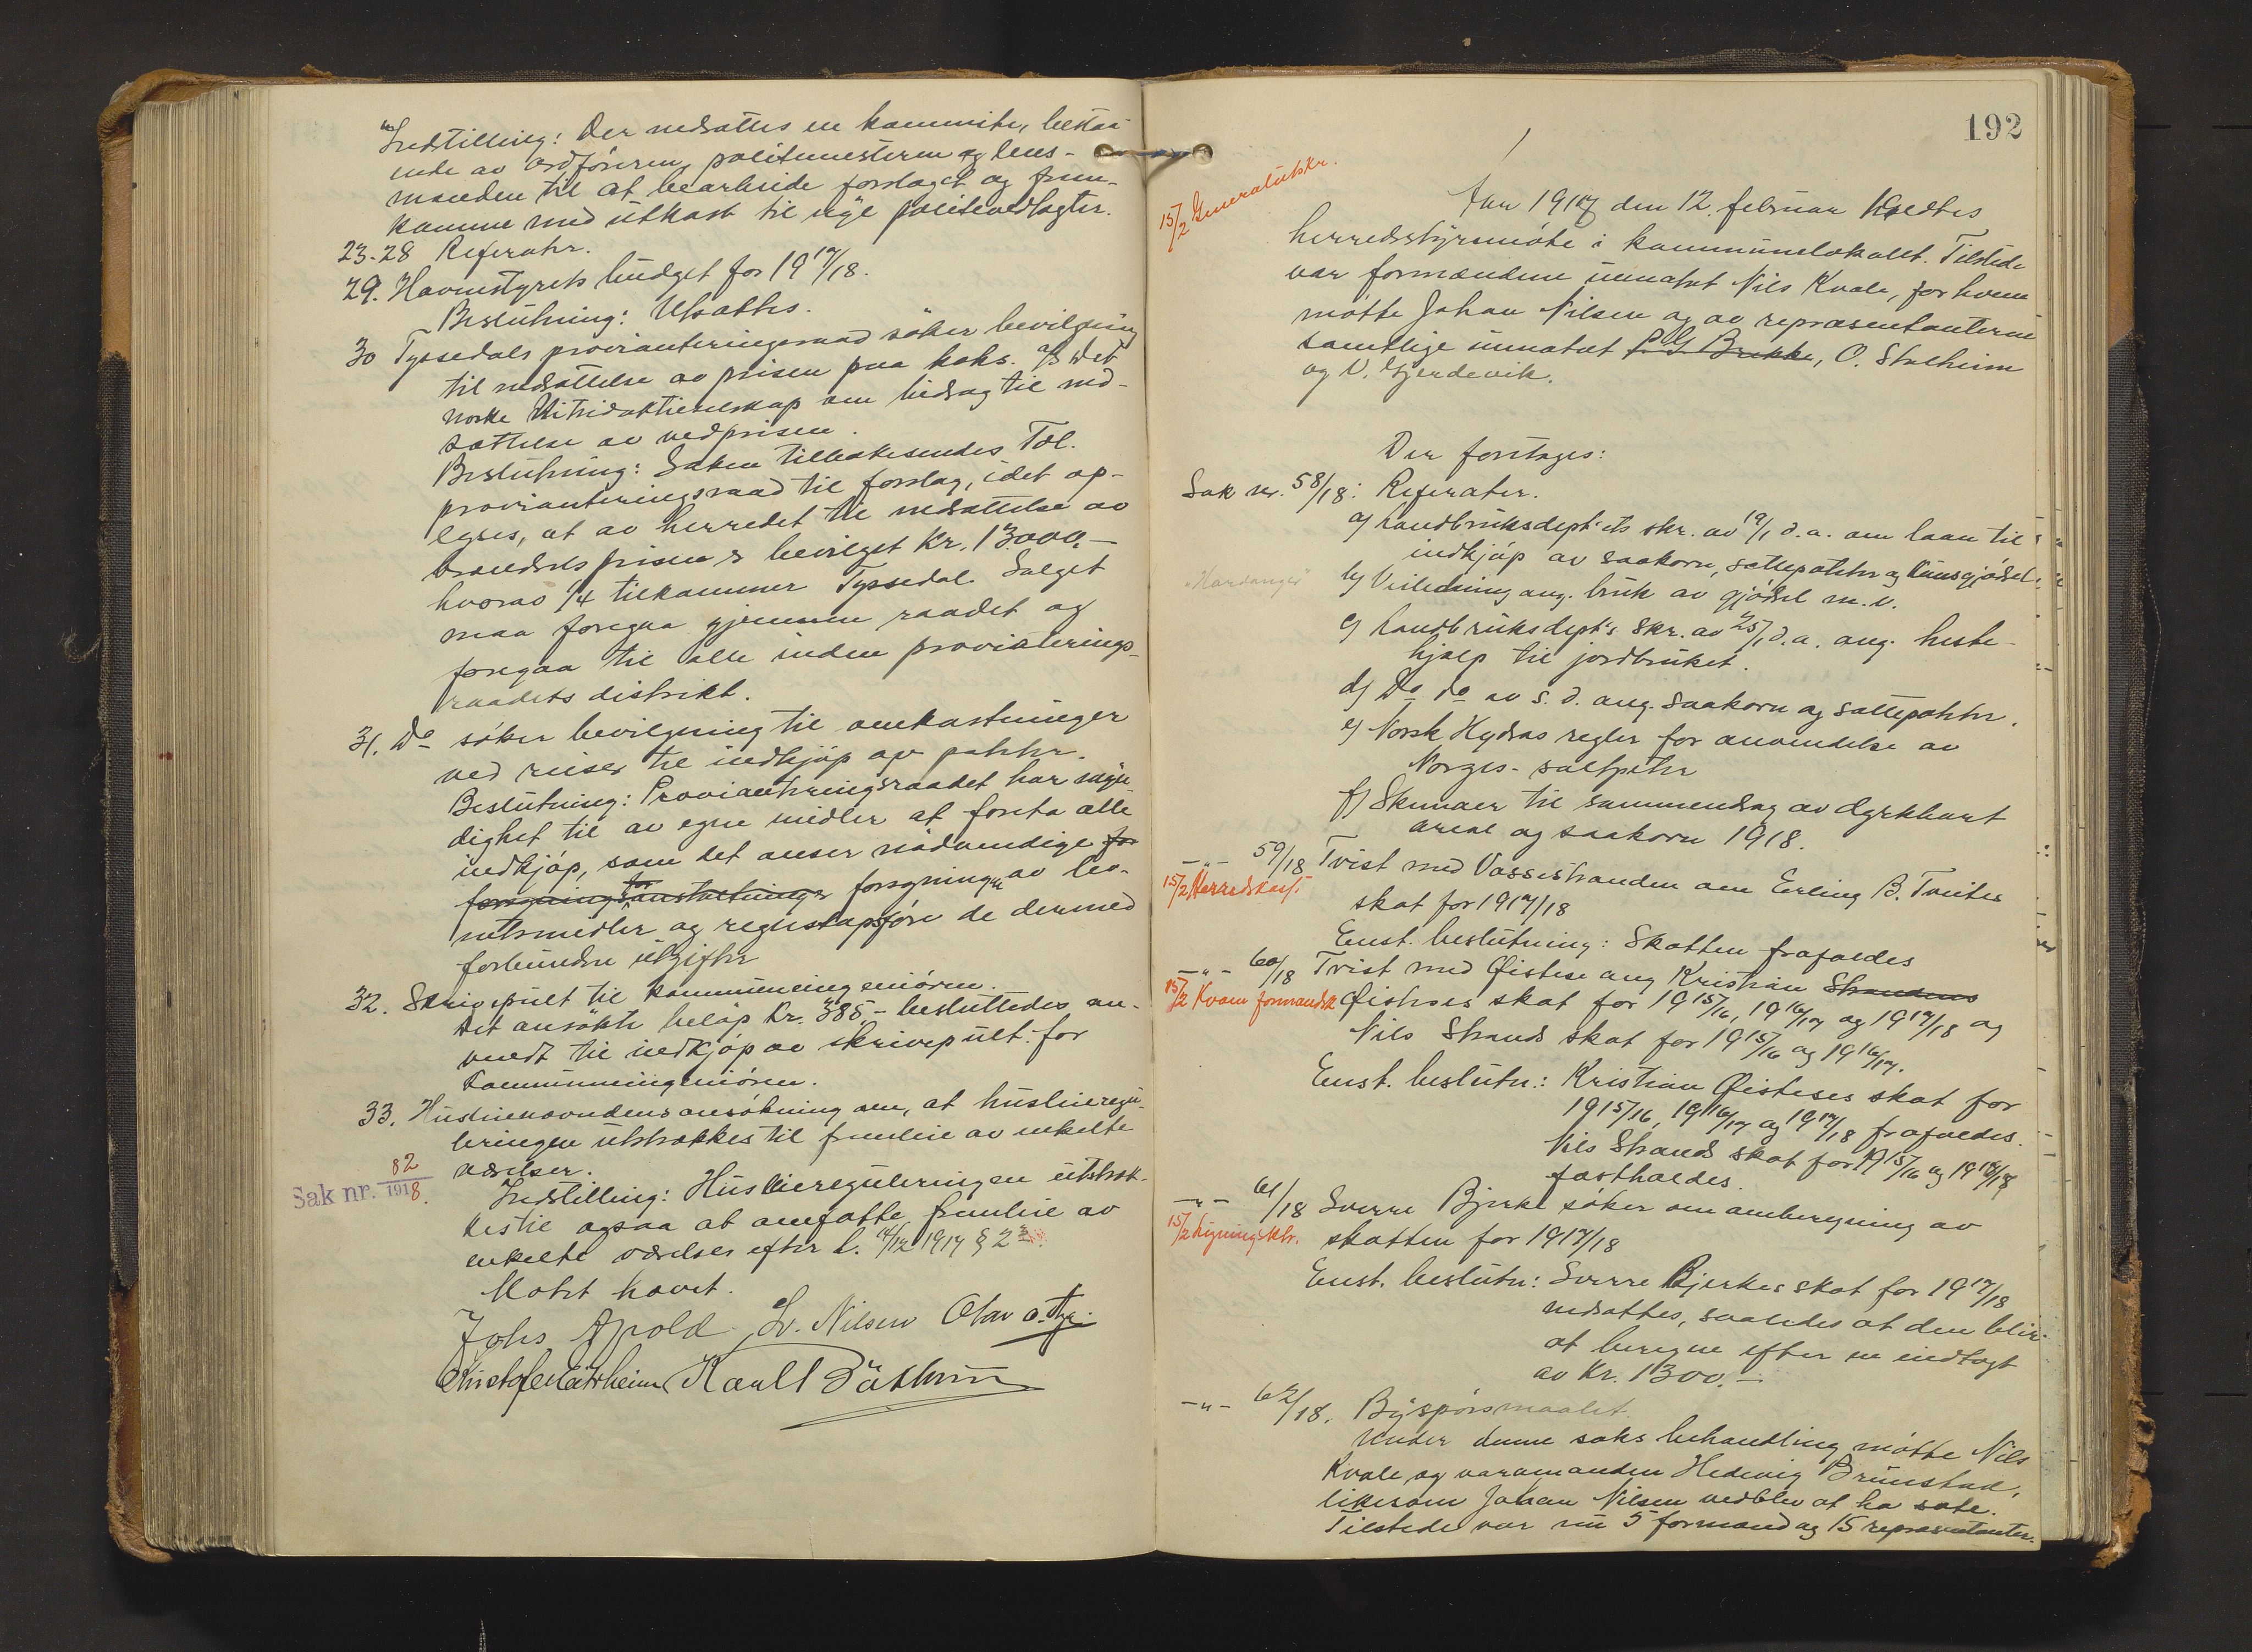 "Indstilling: Der nedsættes en kommite, bestaa-
ende av ordføreren, politimesteren og lens-
manden til at bearbeide forslaget og frem-
komme med utkast til nye politivedtægter.
23-28 Referater.
29. Havnestyrets budget for 1917/18.
Beslutning: Utsættes.
30 Tyssedals provianteringsraad søker bevilgning
til nedsættelse av prisen paa koks. A/S Det
norske Nitridaktieselskap om bidrag til ned-
sættelse av vedprisen.
Beslutning: Saken tilbakesendes Tdl.
provianteringsraad til forslag, idet op-
lyses, at av herredet til nedsættelse av
brændselsprisen er bevilget Kr. 13000,-
hvorav 1/4 tilkommer Tyssedal. Salget
maa foregaa gjennem raadet og
foregaa til alle inden proviaterings-
raadets distrikt.
31. Do søker bevilgning til omkostninger
ved reiser til indkjøp av poteter.
Beslutning: Provianteringsraadet har myn-
dighet til av egne midler at foreta alle
indkjøp, som det anser nødvendige for
for
forsyningsanstaltninger forsyningen av lev-
netsmidler og regnskapsføre de dermed
forbundne utgifter
32. Skrivepult til kommuneingeniøren.
Det ansøkte beløp Kr. 385,- besluttedes an-
vendt til indkjøp av skrivepult for
Kommuneingeniøren.
33. Husleienævndens ansøkning om, at husleieregu-
leringen utstrækkes til fremleie av enkelte
værelser.
Sak nr. 82/1918.
Indstilling: Husleiereguleringen utstræk-
kes til ogsaa at omfatte fremleie av
enkelte værelser efter l. 14/12 1917 § 2
Møtet hævet.
Johs Apold L. Nilsen Olav
Kristofer Mæterheim Karl
192
15/2 Generalutskr.
Aar 1917 den 12. februar holdtes
herredsstyremøte i kommunelokalet. Tilstede
var formændene undtat Nils Kvale, for hvem
møtte Johan Nilsen og av repræsentanterne
samtlige undtat P. G. Brekke, O. Stalheim
og V. Gjerdevik.
Der foretages:
Sak nr. 58/18: Referater.
a) Landbruksdept'ets skr. av 19/1 d.a. om laan til
indkjøp av saakorn, sættepoteter og kunsgjødsel.
"Hardanger"
b) Veiledning ang. bruk av gjødsel m.v.
c) Landbruksdept's skr. av 25/1 d.a. ang. heste-
hjælp til jordbruket.
d) Do do av s.d. ang. saakorn og sættepoteter.
e) Norsk Hydros regler for anvendelse av
Norges-salpeter
f) Skemaer til sammendrag av dyrkbart
areal og saakorn 1918.
-"- 59/18 Tvist med Vossestranden om Erling B. Tveites
15/2 Herredskass.
skat for 1917/18
Enst. beslutning: Skatten frafaldes
-"- 60/18 Tvist med Øistese ang Kristian Strandens
15/2 Kvam formandsk
Øisteses skat for 1915/16, 1916/17 og 1917/18 og
Nils Strands skat for 1915/16 og 1916/17.
Enst. beslutn.: Kristian Øisteses skat for
1915/16, 1916/17 og 1917/18 frafaldes.
Nils Strands skat for 1915/16 og 1916/17
fastholdes.
-"- 61/18 Sverre Bjerke søker om omberegning av
15/2 Ligningsktr.
skatten for 1917/18
Enst. beslutn: Sverre Bjerkes skat for 1917/18
nedsættes, saaledes at den blir
at beregne efter en indtægt
av Kr. 1300.-
-"- 62/18. Byspørsmaalet.
Under denne saks behandling møtte Nils
Kvale og varamanden Hedevig Brunstad,
likesom Johan Nilsen vedblev at ha sæte.
Tilstede var nu 5 formænd og 15 repræsentanter.